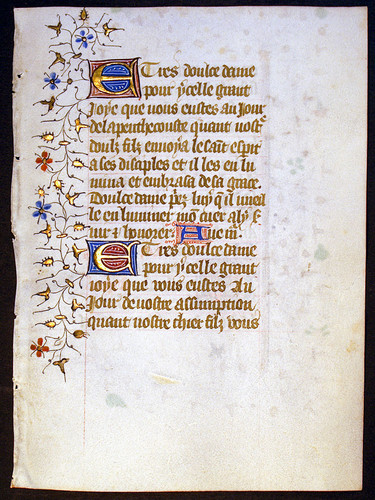 E Tres doulce dame
pour ycelle grant
joye que vous eustes au Jour
de la penthecouste quant nostre
doulz filz envoya le saīt espīt
a ses disaples et il les en lu
mina et embrasa de sa grace.
Doulce dame p̄ez luy q̄ il vueil
le en luminer mō cuer a luy s
uir ⁊ honorer Aue m̄.
E Tres doulce dame
pour ycelle grant
joye que vous eustes Au
Jour de nostre assumption
quant nostre chier filz vous